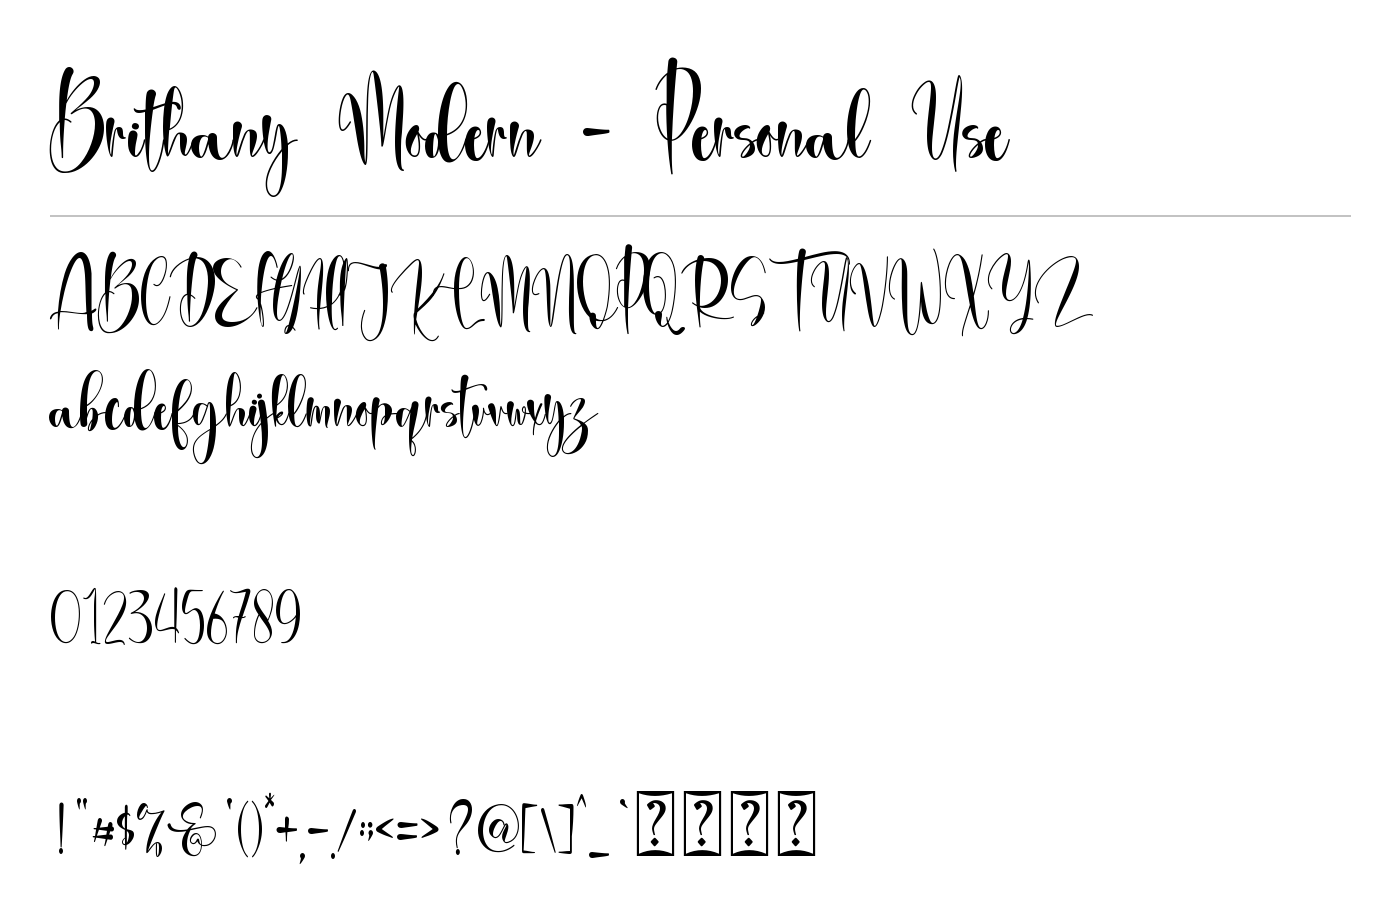 Brithany Modern - Personal Use
ABCDEFGHIJKLMNOPQRSTUVWXYZ
abcdefghijklmnopqrstuvwxyz
0123456789
!"#$%&'()*+,-./:;<=>?@[\]^_`